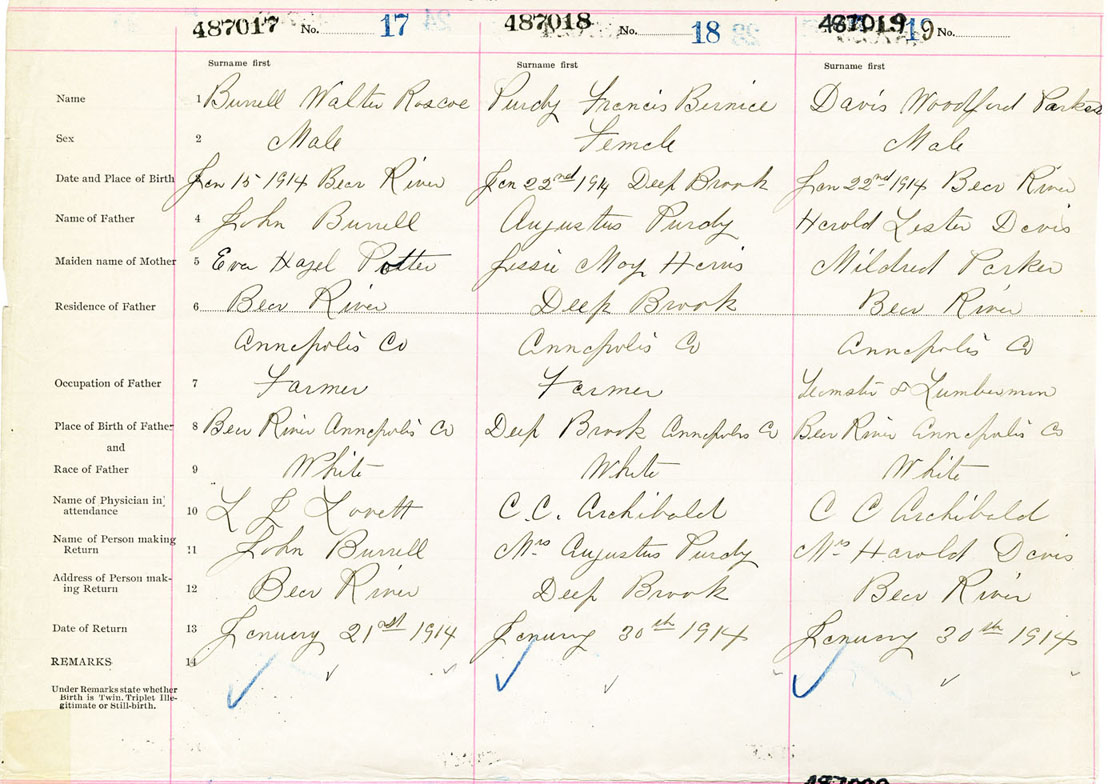 487017 No. 17 487018 No. 18 487019 19 No.
Surname first Surname first Surname first
Name 1 Burrell Walter Roscoe Purdy Francis Bernice Davis Woodford Parker
Sex 2 Male Female Male
Date and Place of Birth 3 Jan 15 1914 Bear River Jan 22nd 1914 Deep Brook Jan 22nd 1914 Bear River
Name of Father 4 John Burrell Augustus Purdy Harold Lester Davis
Maiden name of Mother 5 Eva Hazel Potter Jessie May Harris Mildred Parker
Residence of Father 6 Bear River Deep Brook Bear River
Annapolis Co Annapolis Co Annapolis Co
Occupation of Father 7 Farmer Farmer Teamster & Lumberman
Place of Birth of Father 8 Bear River Annapolis Co Deep Brook Annapolis Co Bear River Annapolis Co
and
Race of Father 9 White White White
Name of Physician in attendance 10 L J Lovett C.C. Archibald C C Archibald
Name of Person making Return 11 John Burrell Mrs Augustus Purdy Mrs Harold Davis
Address of Person mak-ing Return 12 Bear River Deep Brook Bear River
Date of Return 13 January 21st 1914 January 30th 1914 January 30th 1914
REMARKS 14
Under Remarks state whether
Birth is Twin. Triplet Ille-
gitimate or Still-birth.